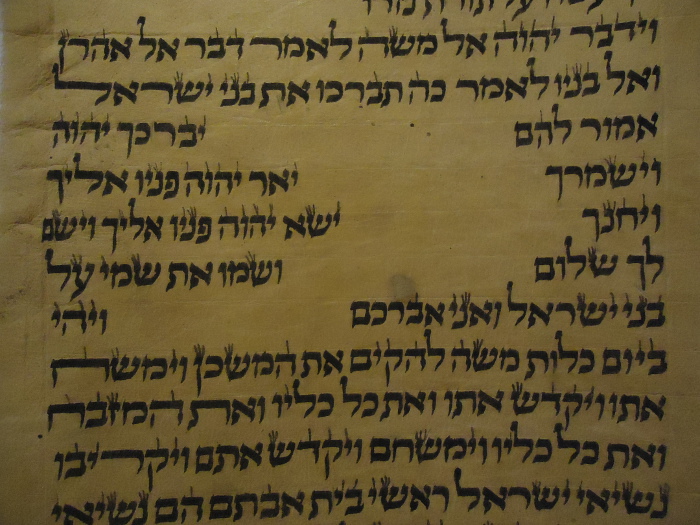 וידבר יהוה אל משה לאמר דבר אל אהרן
ואל בניו לאמר כה תברכו את בני ישראל
אמור להם יברכך יהוה
וישמרך יאר יהוה פניו אליך
ויחנך ישא יהוה פניו אליך וישם
לך שלום ושמו את שמי על
בני ישראל ואני אברכם ויהי
ביום כלות משה להקים את המשכן וימשח
אתו ויקדש אתו ואת כל כליו ואת המזבח
ואת כל כליו וימשחם ויקדש אתם ויקריבו
נשיאי ישראל ראשי בית אבתם הם נשיאי